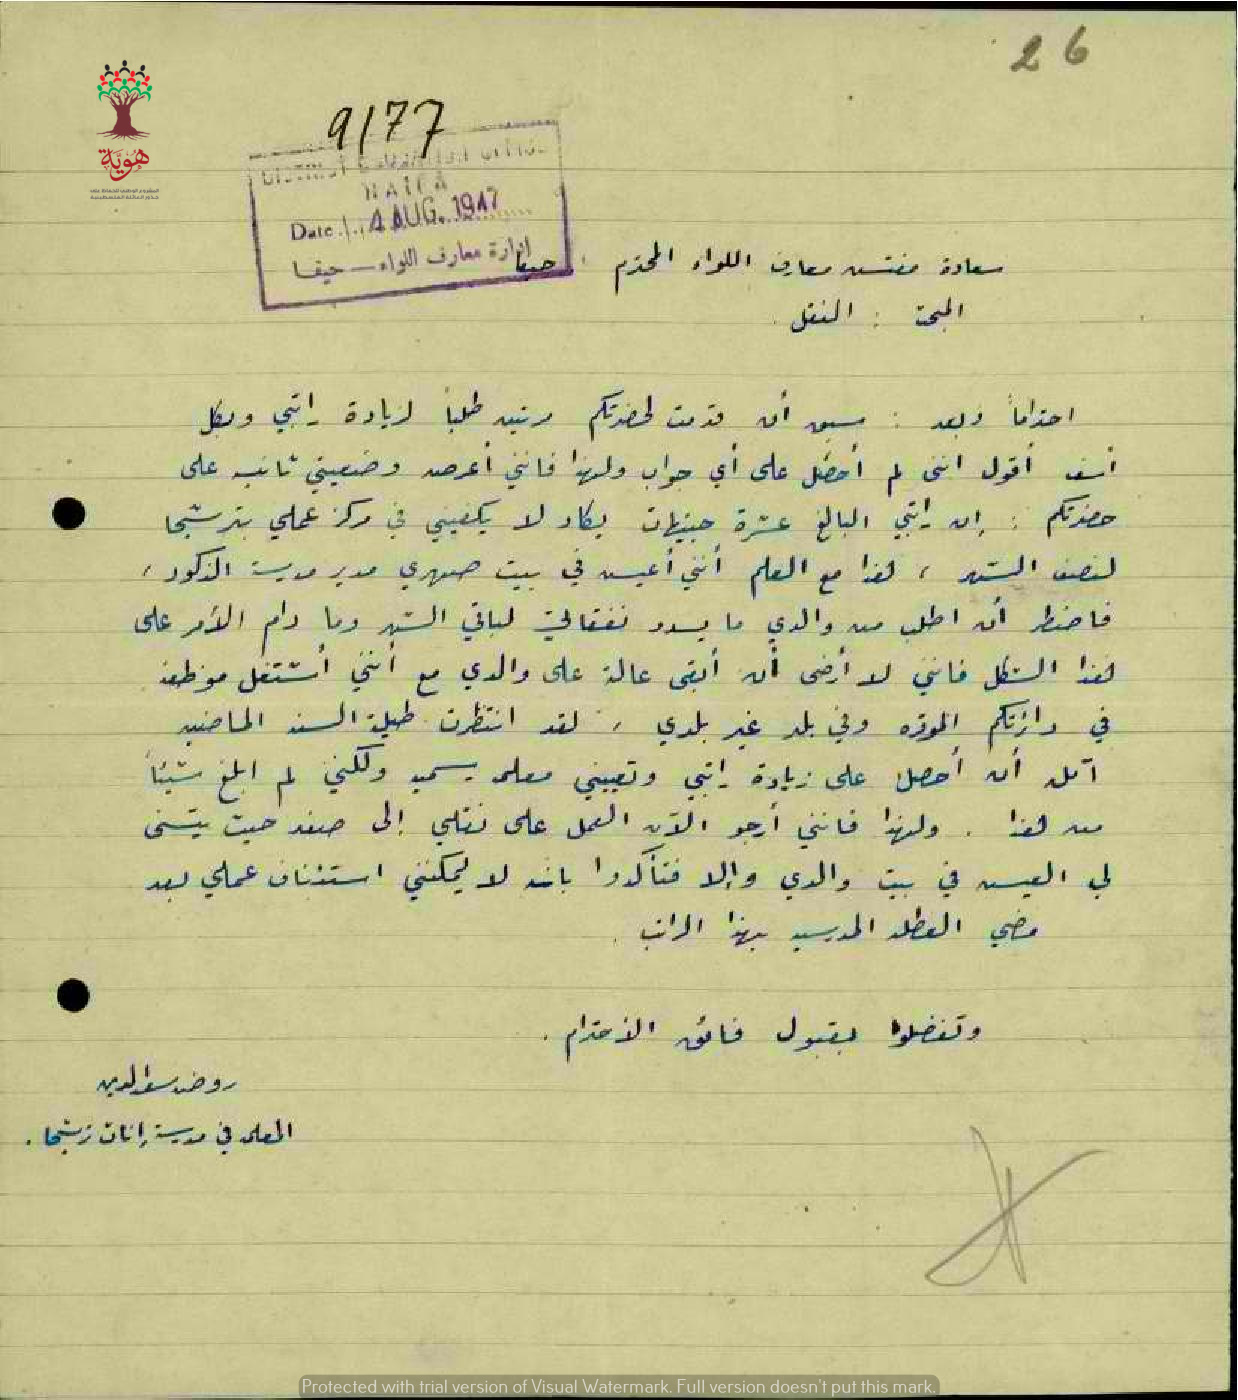 26
هوية
المشروع الوطني للحفاظ على
جذور العائلة الفلسطينية
9/77
DISTRICT EDUCATION OFFICE
HAIFA
Date 4 AUG. 1947
إدارة معارف اللواء — حيفا
سعادة مفتش معارف اللواء المحترم : حيفا
المبحث : النقل .
احتراماً وبعد : سبق أن قدمت لحضرتكم مرتين طلباً لزيادة راتبي وبكل
أسف أقول انني لم أحصل على أي جواب ولهذا فانني أعرض وضعيتي ثانية على
حضرتكم : إن راتبي البالغ عشرة جنيهات يكاد لا يكفيني في مركز عملي بترشيحا
لنصف الشهر ، هذا مع العلم أنني أعيش في بيت صهري مدير مدرسة الذكور ،
فاضطر أن اطلب من والدي ما يسدد نفقاتي لباقي الشهر وما دام الأمر على
هذا الشكل فانني لا أرضى أن أبقى عالة على والدي مع أنني أشتغل موظفة
في دائرتكم الموقرة وفي بلد غير بلدي ، لقد انتظرت طيلة السنة الماضية
آمل أن أحصل على زيادة راتبي وتعييني معلمة رسمية ولكنني لم ابلغ شيئاً
من هذا . ولهذا فانني أرجو الآن العمل على نقلي إلى صفد حيث يتسنى
لي العيش في بيت والدي وإلا فتأكدوا بانه لا يمكنني استئناف عملي بعد
مضي العطلة المدرسية بهذا الراتب .
وتفضلوا بقبول فائق الاحترام .
روضة سعد الدين
المعلمة في مدرسة إناث ترشيحا .
Protected with trial version of Visual Watermark. Full version doesn't put this mark.